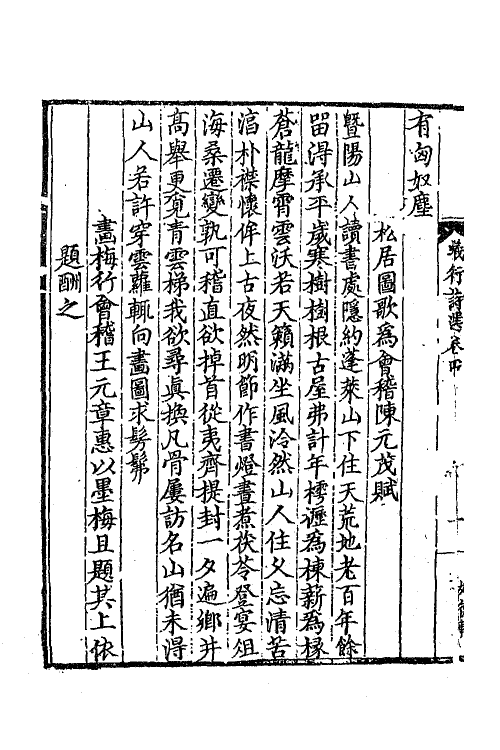 有匈奴塵
松居圖歌爲會稽陳元茂賦
暨陽山人讀書處隱約蓬萊山下住天荒地老百年餘
留得承平歲寒樹樹根古屋弗計年樗瀝爲棟薪爲椽
蒼龍摩霄雲沃若天籟滿坐風泠然山人住久忘清苦
滔朴襟懷侔上古夜然明節作書燈晝煮茯苓登宴俎
海桑遷變孰可稽直欲掉首從夷齊提封一夕遍鄉井
高舉更覓青雲梯我欲尋眞換凡骨屢訪名山猶未得
山人若許穿雲蘿輒向畫圖求髣髴
畫梅行會稽王元章惠以墨梅且題其上依
題酬之
行詩選卷四